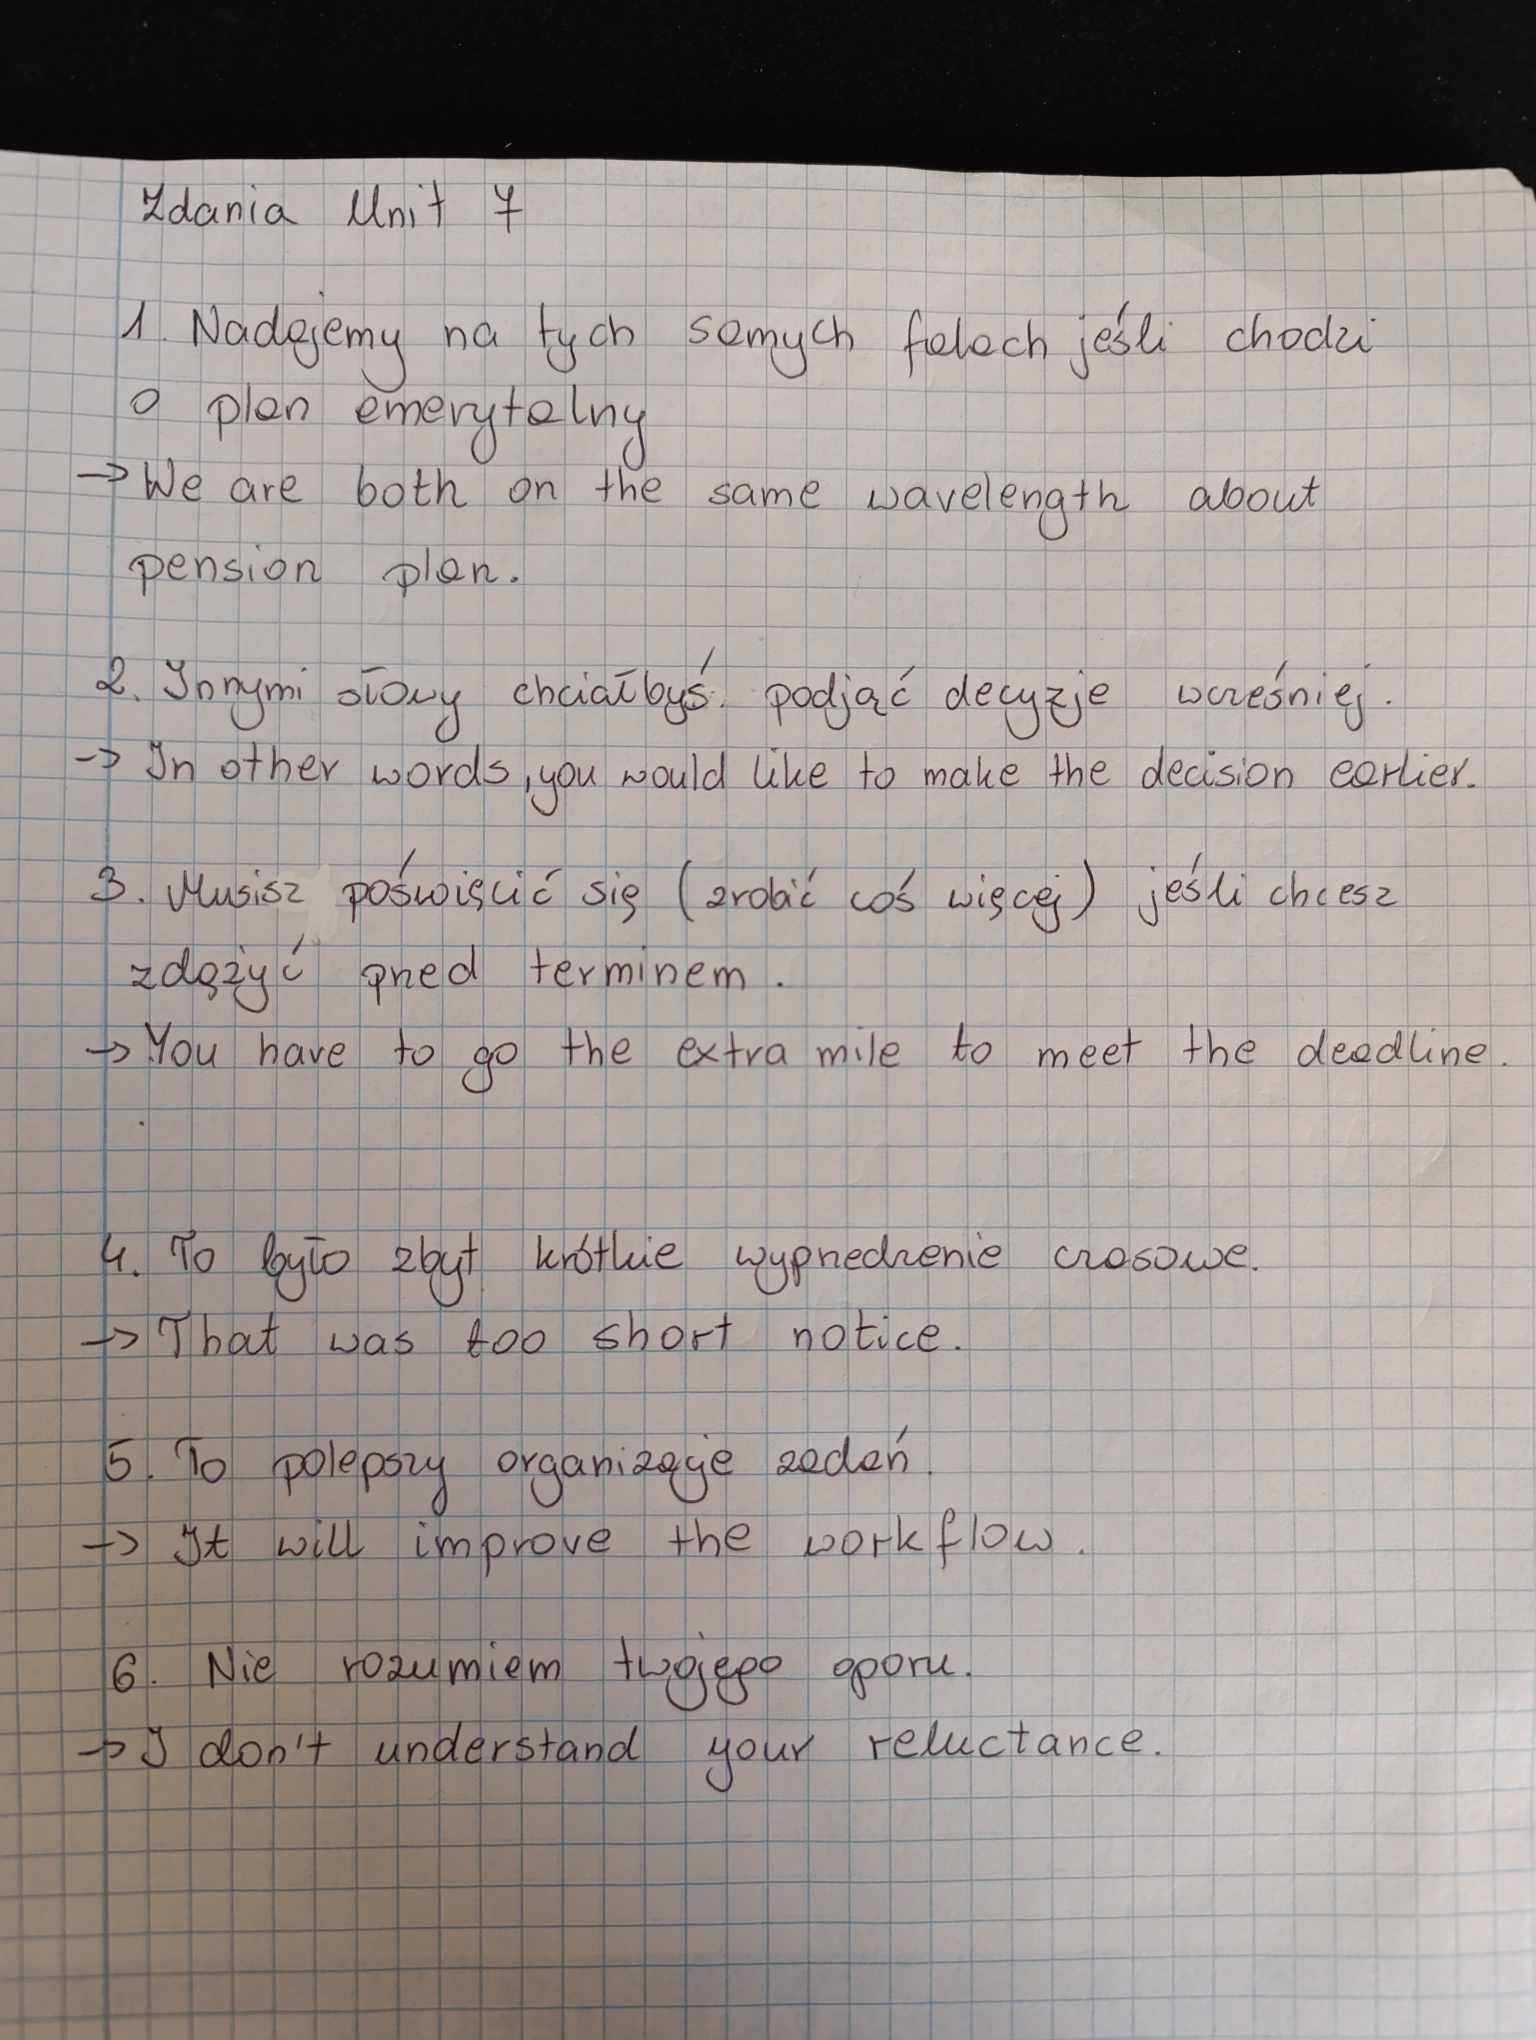 Zdania Unit 7
1. Nadajemy na tych samych falach jeśli chodzi
o plan emerytalny
→ We are both on the same wavelength about
pension plan.
2. Innymi słowy chciałbyś podjąć decyzje wcześniej.
→ In other words, you would like to make the decision earlier.
3. Musisz poświęcić się (zrobić coś więcej) jeśli chcesz
zdążyć przed terminem.
→ You have to go the extra mile to meet the deadline.
4. To było zbyt krótkie wyprzedzenie czasowe.
→ That was too short notice.
5. To polepszy organizację zadań.
→ It will improve the workflow.
6. Nie rozumiem twojego oporu.
→ I don't understand your reluctance.